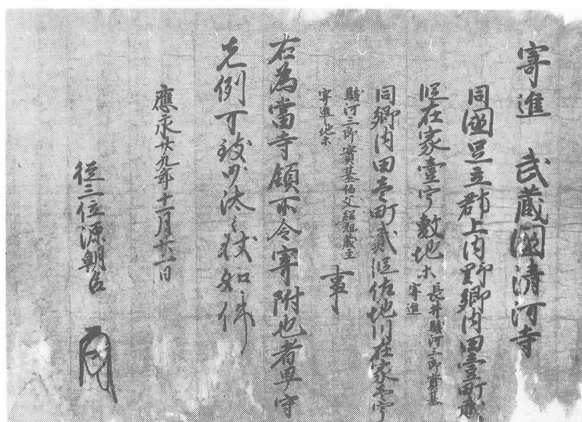 寄進 武蔵國清河寺
同國足立郡上内野郷内田壹町貳
段在家壹宇敷地ホ 長井駿河三郎實基
寄進
同郷内田壱町貳段佐地川在家壱宇
駿河三郎實基伯父紹祖蔵主
寄進地ホ 事
右為當寺領所令寄附也者早守
先例可致沙汰之状如件
應永廿九年十一月廿一日
従三位源朝臣